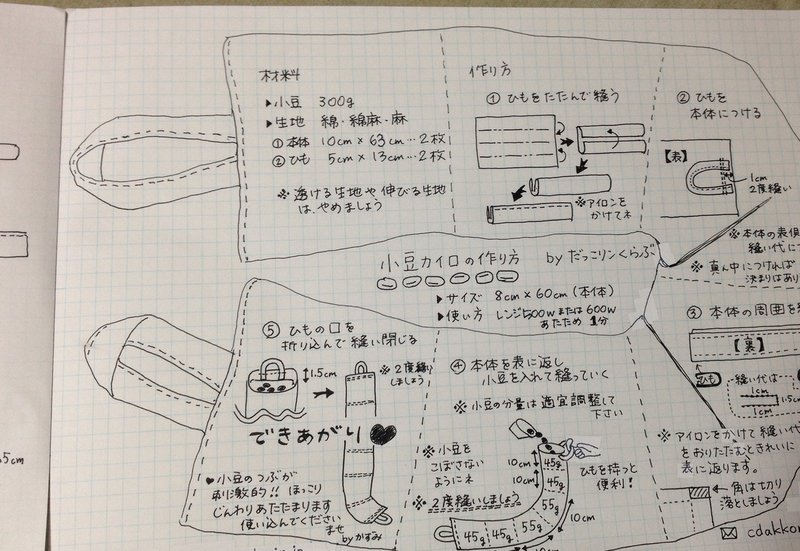 材料
▶小豆 300g
▶生地 綿・綿麻・麻
①本体 10cm×63cm…2枚
②ひも 5cm×13cm…2枚
※透ける生地や伸びる生地
は、やめましょう
作り方
①ひもをたたんで縫う
※アイロンを
かけてネ
②ひもを
本体につける
【表】
1cm
2度縫い
※本体の表側
縫い代に
※真ん中につければ
決まりはあり
小豆カイロの作り方 byだっこりんくらぶ
▶サイズ 8cm×60cm(本体)
▶使い方 レンジ500wまたは600w
あたため 1分
③本体の周囲を
【裏】
ひも
縫い代は
1cm
1.5cm
1cm
※アイロンをかけて縫い代
をおりたたむときれいに
表に返ります。
角は切り
落としましょう
cdakkor
④本体を表に返し
小豆を入れて縫っていく
※小豆の分量は適宜調整して
下さい
※小豆を
こぼさない
ようにネ
※2度縫いしましょう
ひもを持つと
便利!
10cm
10cm
10cm
10cm
45g
45g
55g
55g
45g
45g
⑤ひもの口を
折り込んで縫い閉じる
1.5cm
※2度縫い
しましょう
できあがり♥
♥小豆のつぶが
刺激的!!ほっこり
じんわりあたたまります
使い込んでください
ませ
byかすみ
.5cm